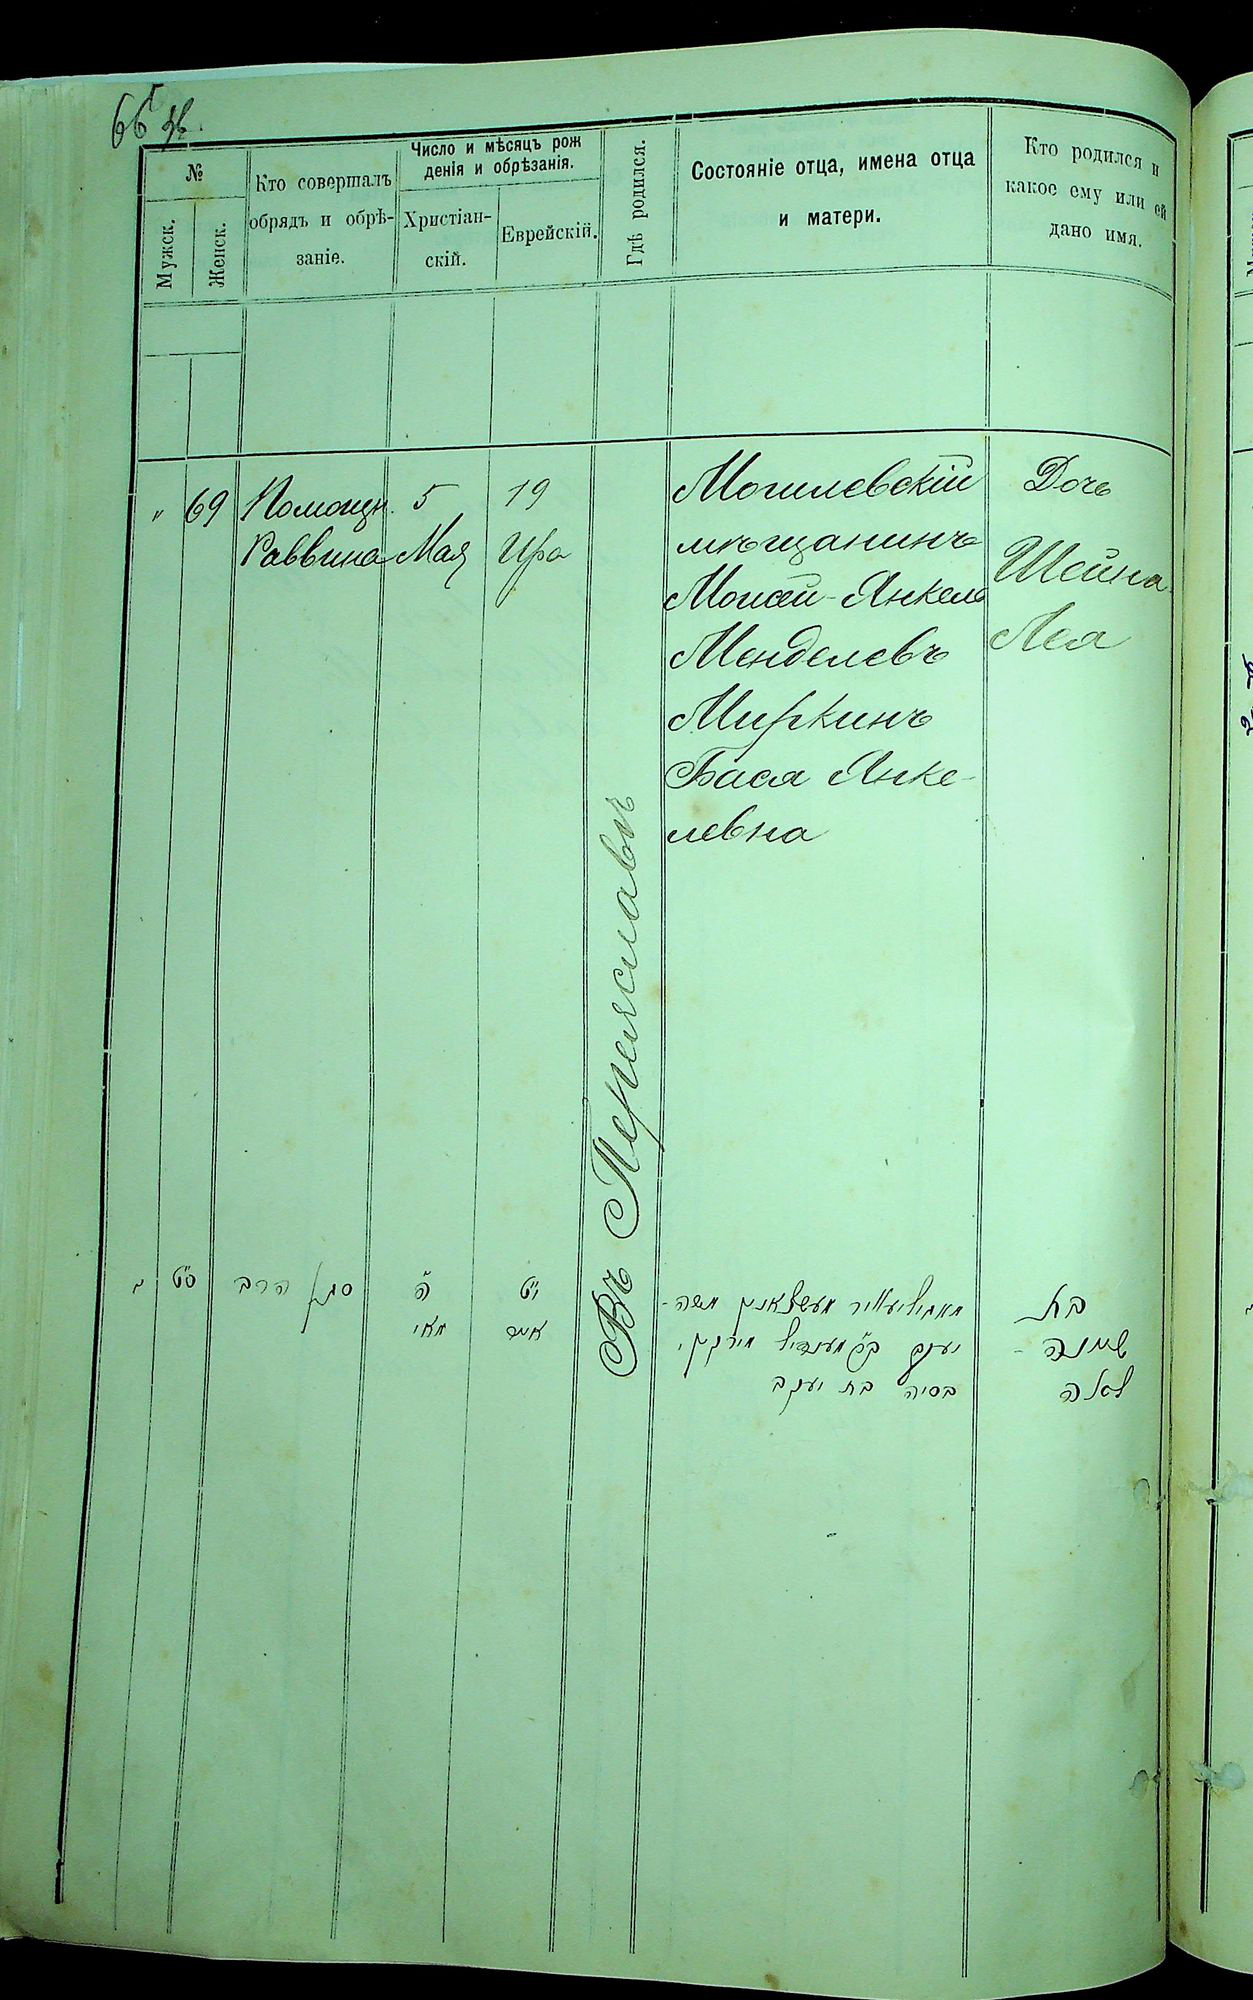 66
№
Мужск.
Женск.
Кто совершалъ
обрядъ и обрѣ-
заніе.
Число и мѣсяцъ рож
денія и обрѣзанія.
Христіан-
скій.
Еврейскій.
Гдѣ родился.
Состояніе отца, имена отца
и матери.
Кто родился и
какое ему или ей
дано имя.
" 69
Помощн.
Раввина
5
Мая
19
Ира
Въ Переяславѣ
Могилевскій
мѣщанинъ
Моисей-Янкель
Менделевъ
Миркинъ
Бася Янке-
левна
Дочь
Шейна
Лея
ס״ט
הרב
ה
מאי
י״ט
אייר
משה-
יעקב מענדיל מירקין,
בסיה בת יעקב
בת
שיינה -
לאה